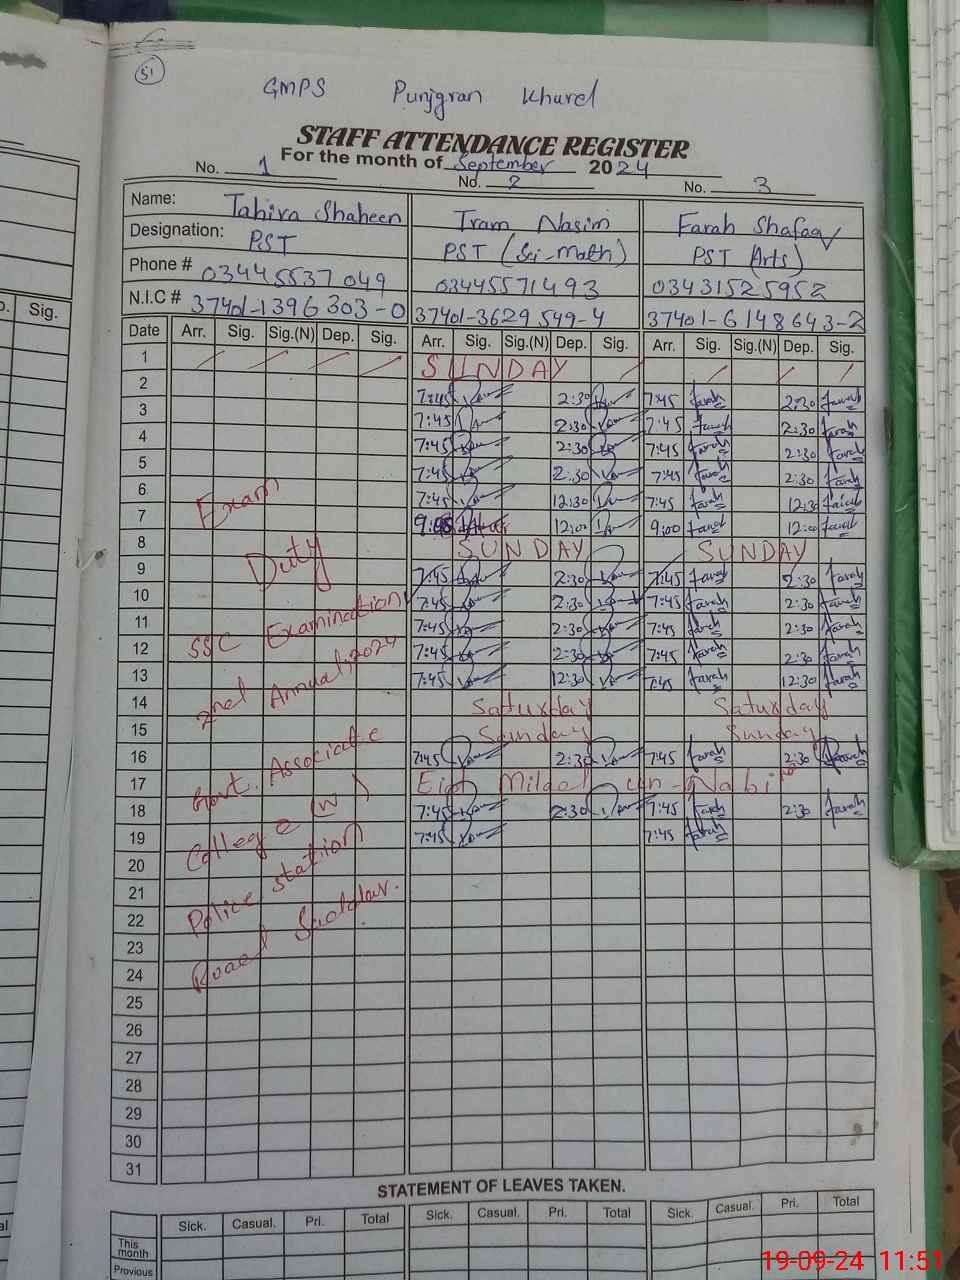 51
GMPS Punjgran Khurd
STAFF ATTENDANCE REGISTER
For the month of September 2024
No. 1 No. 2 No. 3
Name: Tahira Shaheen Iram Nasim Farah Shafaq
Designation: PST PST (Sci-Math) PST (Arts)
Phone # 03445537049 03445571493 03431525952
N.I.C # 37401-1396303-0 37401-3629549-4 37401-6148643-2
Date Arr. Sig. Sig.(N) Dep. Sig. Arr. Sig. Sig.(N) Dep. Sig. Arr. Sig. Sig.(N) Dep. Sig.
1 SUNDAY
2 7:45 2:30 7:45 Farah 2:30 Farah
3 7:45 2:30 7:45 Farah 2:30 Farah
4 7:45 2:30 7:45 Farah 2:30 Farah
5 7:45 2:30 7:45 Farah 2:30 Farah
6 7:45 12:30 7:45 Farah 12:30 Farah
7 12:00 9:00 Farah 12:00 Farah
8 SUNDAY SUNDAY
9 7:45 2:30 7:45 Farah 2:30 Farah
10 7:45 2:30 7:45 Farah 2:30 Farah
11 7:45 2:30 7:45 Farah 2:30 Farah
12 7:45 2:30 7:45 Farah 2:30 Farah
13 7:45 12:30 7:45 Farah 12:30 Farah
14 Saturday Saturday
15 Sunday Sunday
16 7:45 2:30 7:45 Farah 2:30 Farah
17 Eid Milad un-Nabi
18 7:45 2:30 7:45 Farah 2:30 Farah
19 7:45 7:45 Farah
20
21
22
23
24
25
26
27
28
29
30
31
Exam
Duty
SSC Examination
2nd Annual, 2024
Govt. Associate
College (W)
Police station
Road
STATEMENT OF LEAVES TAKEN.
Sick. Casual. Pri. Total Sick. Casual. Pri. Total Sick. Casual. Pri. Total
This month
Previous
Sig.
19-09-24 11:51